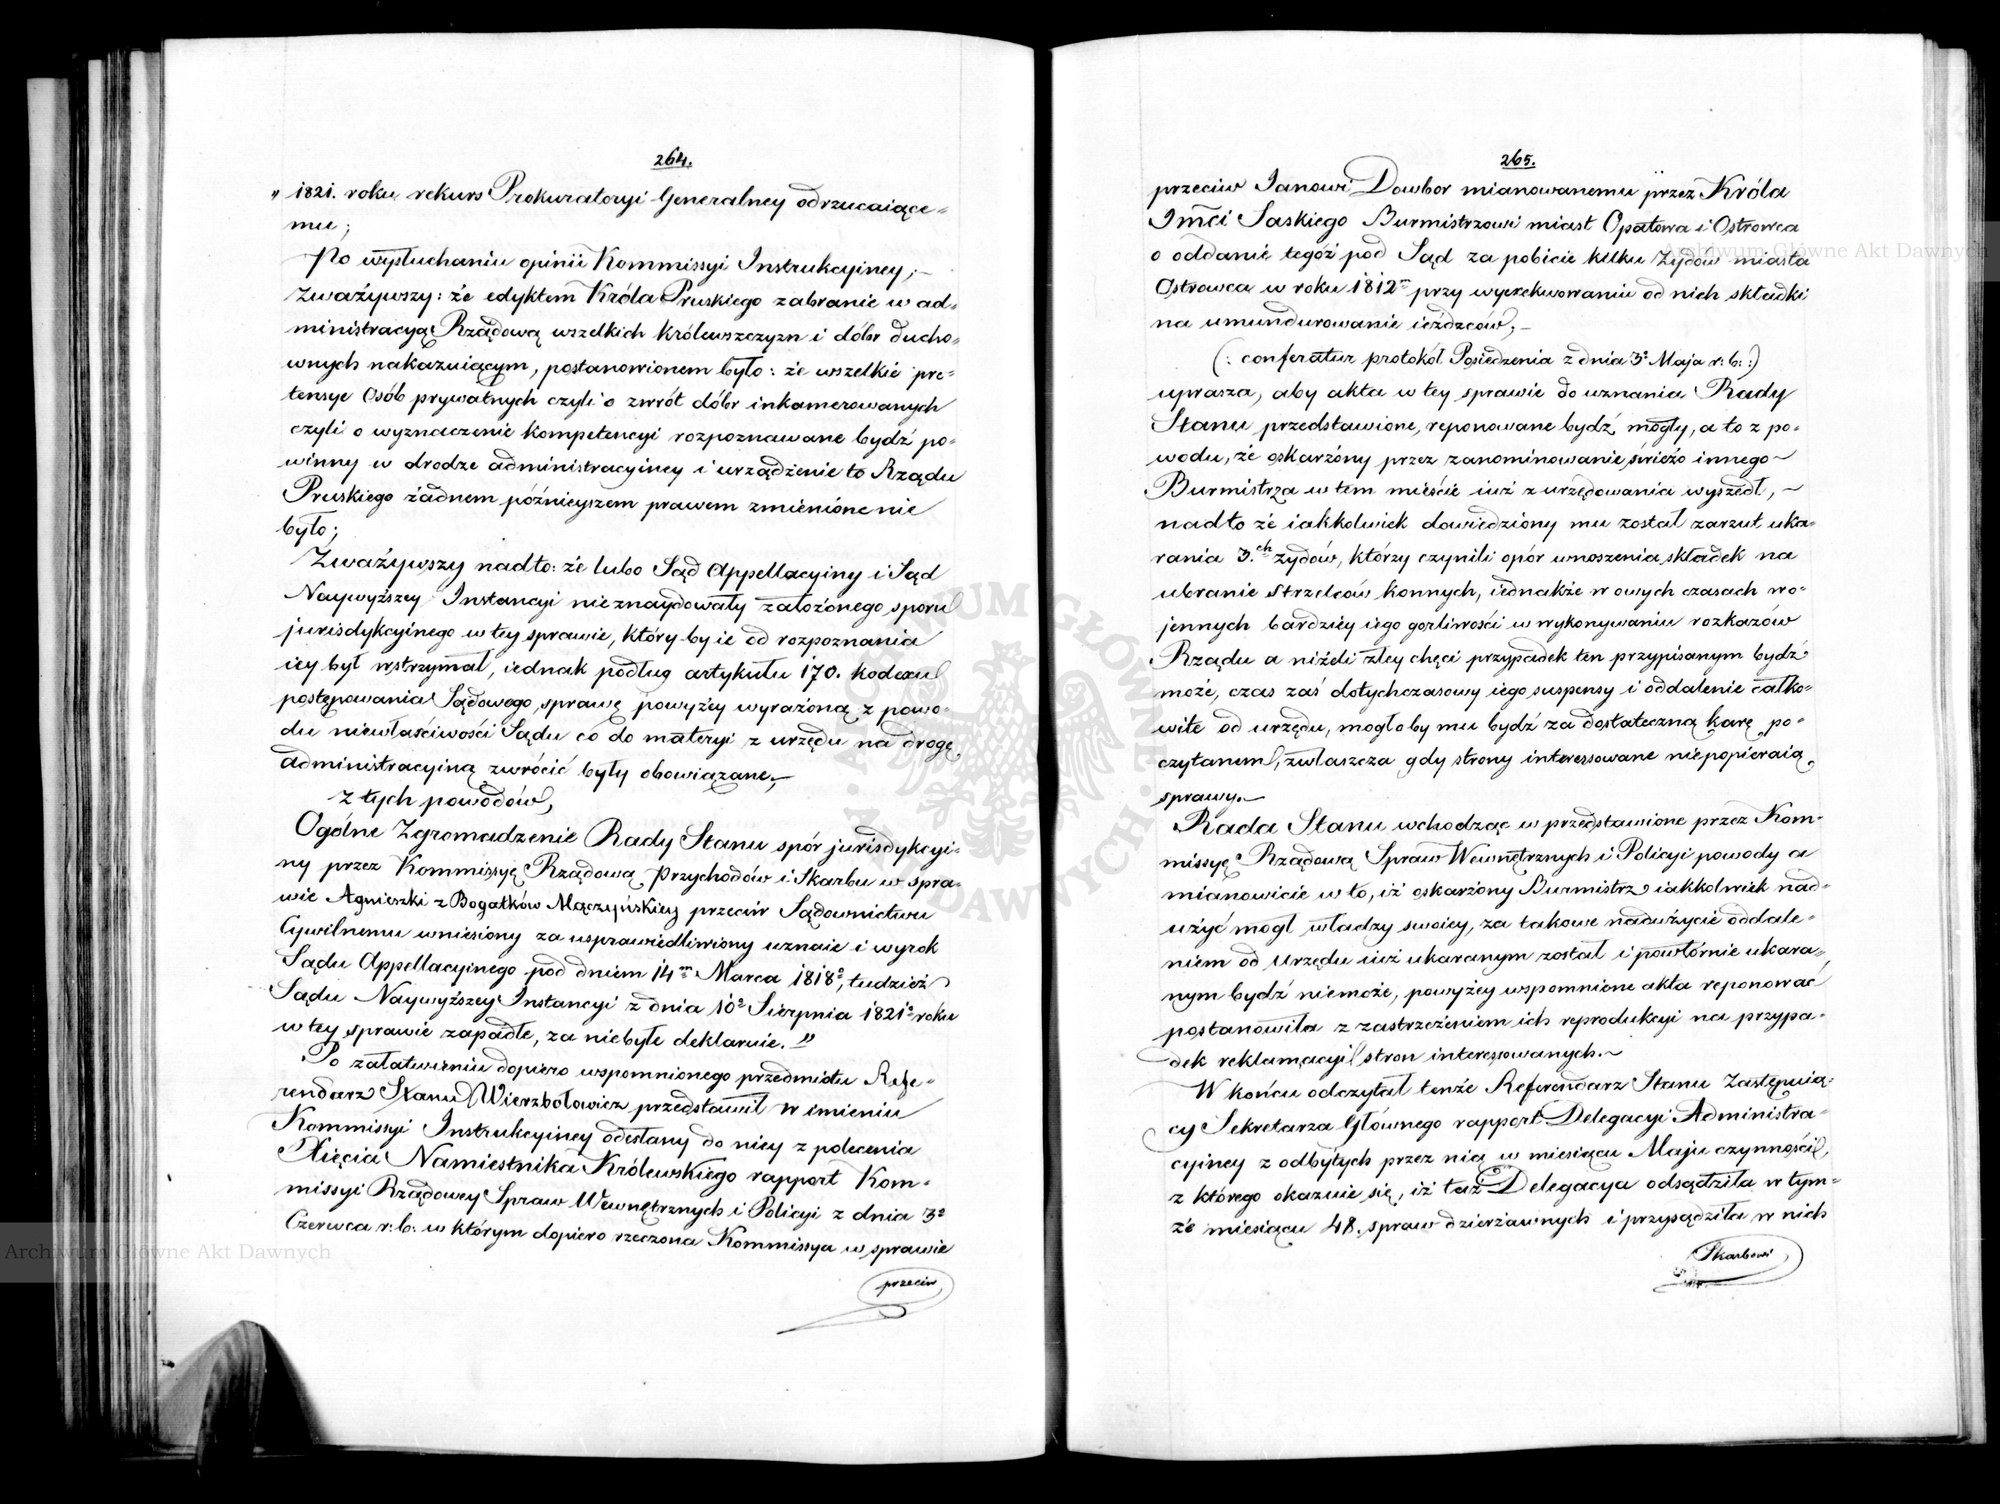 264.
„ 1821. roku rekurs Prokuratoryi Generalney odrzucaiące-
mu;
Po wysłuchaniu opinii Kommissyi Instrukcyiney;—
Zważywszy: że edyktem Króla Pruskiego zabranie w ad-
ministracyą Rządową wszelkich królewszczyzn i dóbr ducho-
wnych nakazuiącym, postanowionem było: że wszelkie pre-
tensye Osób prywatnych czyli o zwrót dóbr inkamerowanych
czyli o wyznaczenie kompetencyi rozpoznawane bydź po-
winny w drodze administracyiney i urządzenie to Rządu
Pruskiego żadnem późnieyszem prawem zmienione nie
było;
Zważywszy nadto: że lubo Sąd Appellacyiny i Sąd
Naywyższey Instancyi nieznaydowały założonego sporu
jurisdykcyinego w tey sprawie, który by ie od rozpoznania
iey był wstrzymał, iednak podług artykułu 170. kodexu
postępowania Sądowego, sprawę powyżey wyrażoną z powo-
du niewłaściwości Sądu co do materyi z urzędu na drogę
administracyiną zwrócić były obowiązane,—
z tych powodów,
Ogólne Zgromadzenie Rady Stanu spór jurisdykcyi-
ny przez Kommissyą Rządową Przychodów i Skarbu w spra-
wie Agnieszki z Bogatków Mączyńskiey przeciw Sądownictwu
Cywilnemu wniesiony za usprawiedliwiony uznaie i wyrok
Sądu Appellacyinego pod dniem 14m Marca 1818o, tudzież
Sądu Naywyższey Instancyi z dnia 10o Sierpnia 1821o roku
w tey sprawie zapadłe, za niebyłe deklaruie. "
Po załatwieniu dopiero wspomnionego przedmiotu Refe-
rendarz Stanu Wierzbołowicz przedstawił w imieniu
Kommissyi Instrukcyiney odesłany do niey z polecenia
Xięcia Namiestnika Królewskiego rapport Kom-
missyi Rządowey Spraw Wewnętrznych i Policyi z dnia 3o
Czerwca r: b: w którym dopiero rzeczona Kommissya w sprawie
przeciw
265.
przeciw Janowi Dowbor mianowanemu przez Króla
Jmci Saskiego Burmistrzowi miast Opatowa i Ostrowca
o oddanie tegóż pod Sąd za pobicie kilku Żydów miasta
Ostrowca w roku 1812m przy wyexekwowaniu od nich składki
na umundurowanie ieźdzców;—
(: conferatur protokół Posiedzenia z dnia 3o Maja r: b: :)
uprasza, aby akta w tey sprawie do uznania Rady
Stanu przedstawione, reponowane bydź mogły, a to z po-
wodu, że oskarżony przez zanominowanie świeżo innego
Burmistrza w tem mieście iuż z urzędowania wyszedł,—
nadto że iakkolwiek dowiedziony mu został zarzut uka-
rania 3.ch żydów, którzy czynili opór wnoszenia składek na
ubranie strzelców konnych, iednakże w owych czasach wo-
jennych bardziey iego gorliwości w wykonywaniu rozkazów
Rządu a niżeli złey chęci przypadek ten przypisanym bydź
może, czas zaś dotychczasowy iego suspensy i oddalenie całko-
wite od urzędu, mogłoby mu bydź za dostateczną karę po-
czytanem, zwłaszcza gdy strony interessowane niepopieraią
sprawy.—
Rada Stanu wchodząc w przedstawione przez Kom-
missyę Rządową Spraw Wewnętrznych i Policyi powody a
mianowicie w to, iż oskarżony Burmistrz iakkolwiek nad-
użyć mógł władzy swoiey, za takowe nadużycie oddale-
niem od Urzędu iuż ukaranym został i powtórnie ukara-
nym bydź niemoże, powyżey wspomnione akta reponować
postanowiła z zastrzeżeniem ich reprodukcyi na przypa-
dek reklamacyi stron interessowanych.—
W końcu odczytał tenże Referendarz Stanu Zastępuią-
cy Sekretarza Głównego rapport Delegacyi Administra-
cyiney z odbytych przez nią w miesiącu Maju czynności,
z którego okazuie się, iż taż Delegacya odsądziła w tym-
że miesiącu 48. spraw dzierżawnych i przysądziła w nich
Skarbowi
Archiwum Główne Akt Dawnych
Archiwum Główne Akt Dawnych
ARCHIWUM GŁÓWNE AKT DAWNYCH